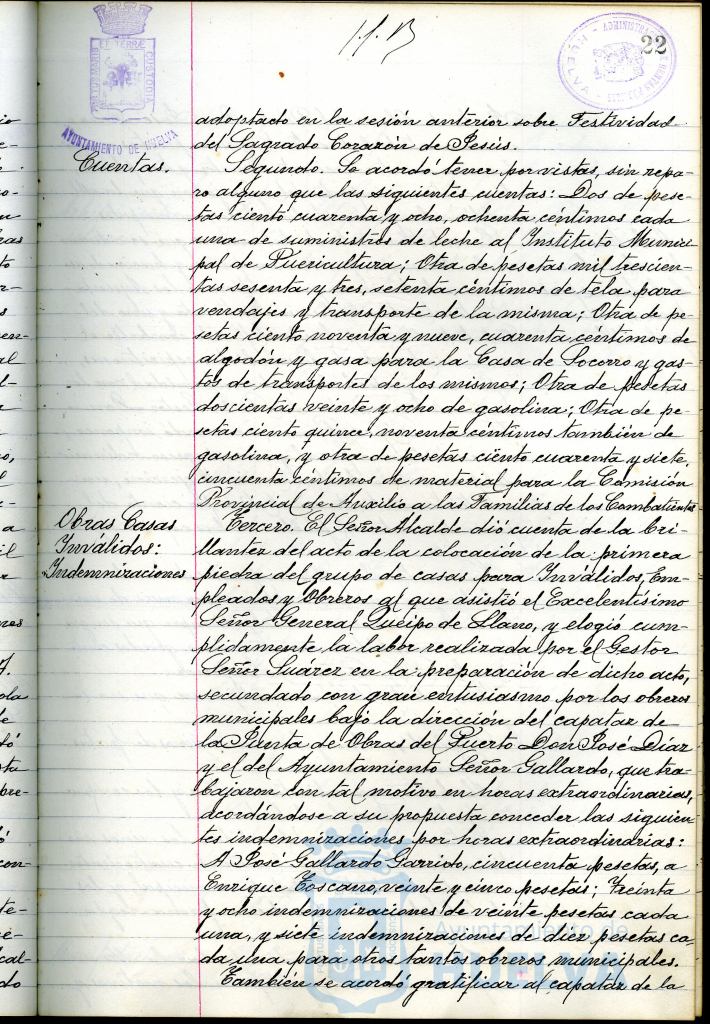 22
AYUNTAMIENTO DE HUELVA
adoptado en la sesión anterior sobre Festividad
del Sagrado Corazón de Jesús.
Cuentas.
Segundo. Se acordó tener por vistas, sin repa-
ro alguno que las siguientes cuentas: Dos de pese-
tas ciento cuarenta y ocho, ochenta céntimos cada
una de suministros de leche al Instituto Munici-
pal de Puericultura; Otra de pesetas mil trescien-
tas sesenta y tres, setenta céntimos de tela para
vendajes y transporte de la misma; Otra de pe-
setas ciento noventa y nueve, cuarenta céntimos de
algodón y gasa para la Casa de Socorro y gas-
tos de transportes de los mismos; Otra de pesetas
doscientas veinte y ocho de gasolina; Otra de pe-
setas ciento quince, noventa céntimos también de
gasolina, y otra de pesetas ciento cuarenta y siete,
cincuenta céntimos de material para la Comisión
Provincial de Auxilio a las Familias de los Combatientes
Obras Casas
Inválidos:
Indemnizaciones
Tercero. El Señor Alcalde dió cuenta de la bri-
llantez del acto de la colocación de la primera
piedra del grupo de casas para Inválidos, Em-
pleados y Obreros al que asistió el Excelentísimo
Señor General Queipo de Llano, y elogió cum-
plidamente la labor realizada por el Gestor
Señor Suárez en la preparación de dicho acto,
secundado con gran entusiasmo por los obreros
municipales bajo la dirección del capataz de
la Junta de Obras del Puerto Don José Díaz
y el del Ayuntamiento Señor Gallardo, que tra-
bajaron con tal motivo en horas extraordinarias,
acordándose a su propuesta conceder las siguien-
tes indemnizaciones por horas extraordinarias:
A José Gallardo Garrido, cincuenta pesetas, a
Enrique Toscano, veinte y cinco pesetas; Treinta
y ocho indemnizaciones de veinte pesetas cada
una, y siete indemnizaciones de diez pesetas ca-
da una para otros tantos obreros municipales.
También se acordó gratificar al capataz de la
Ayuntamiento de
HUELVA